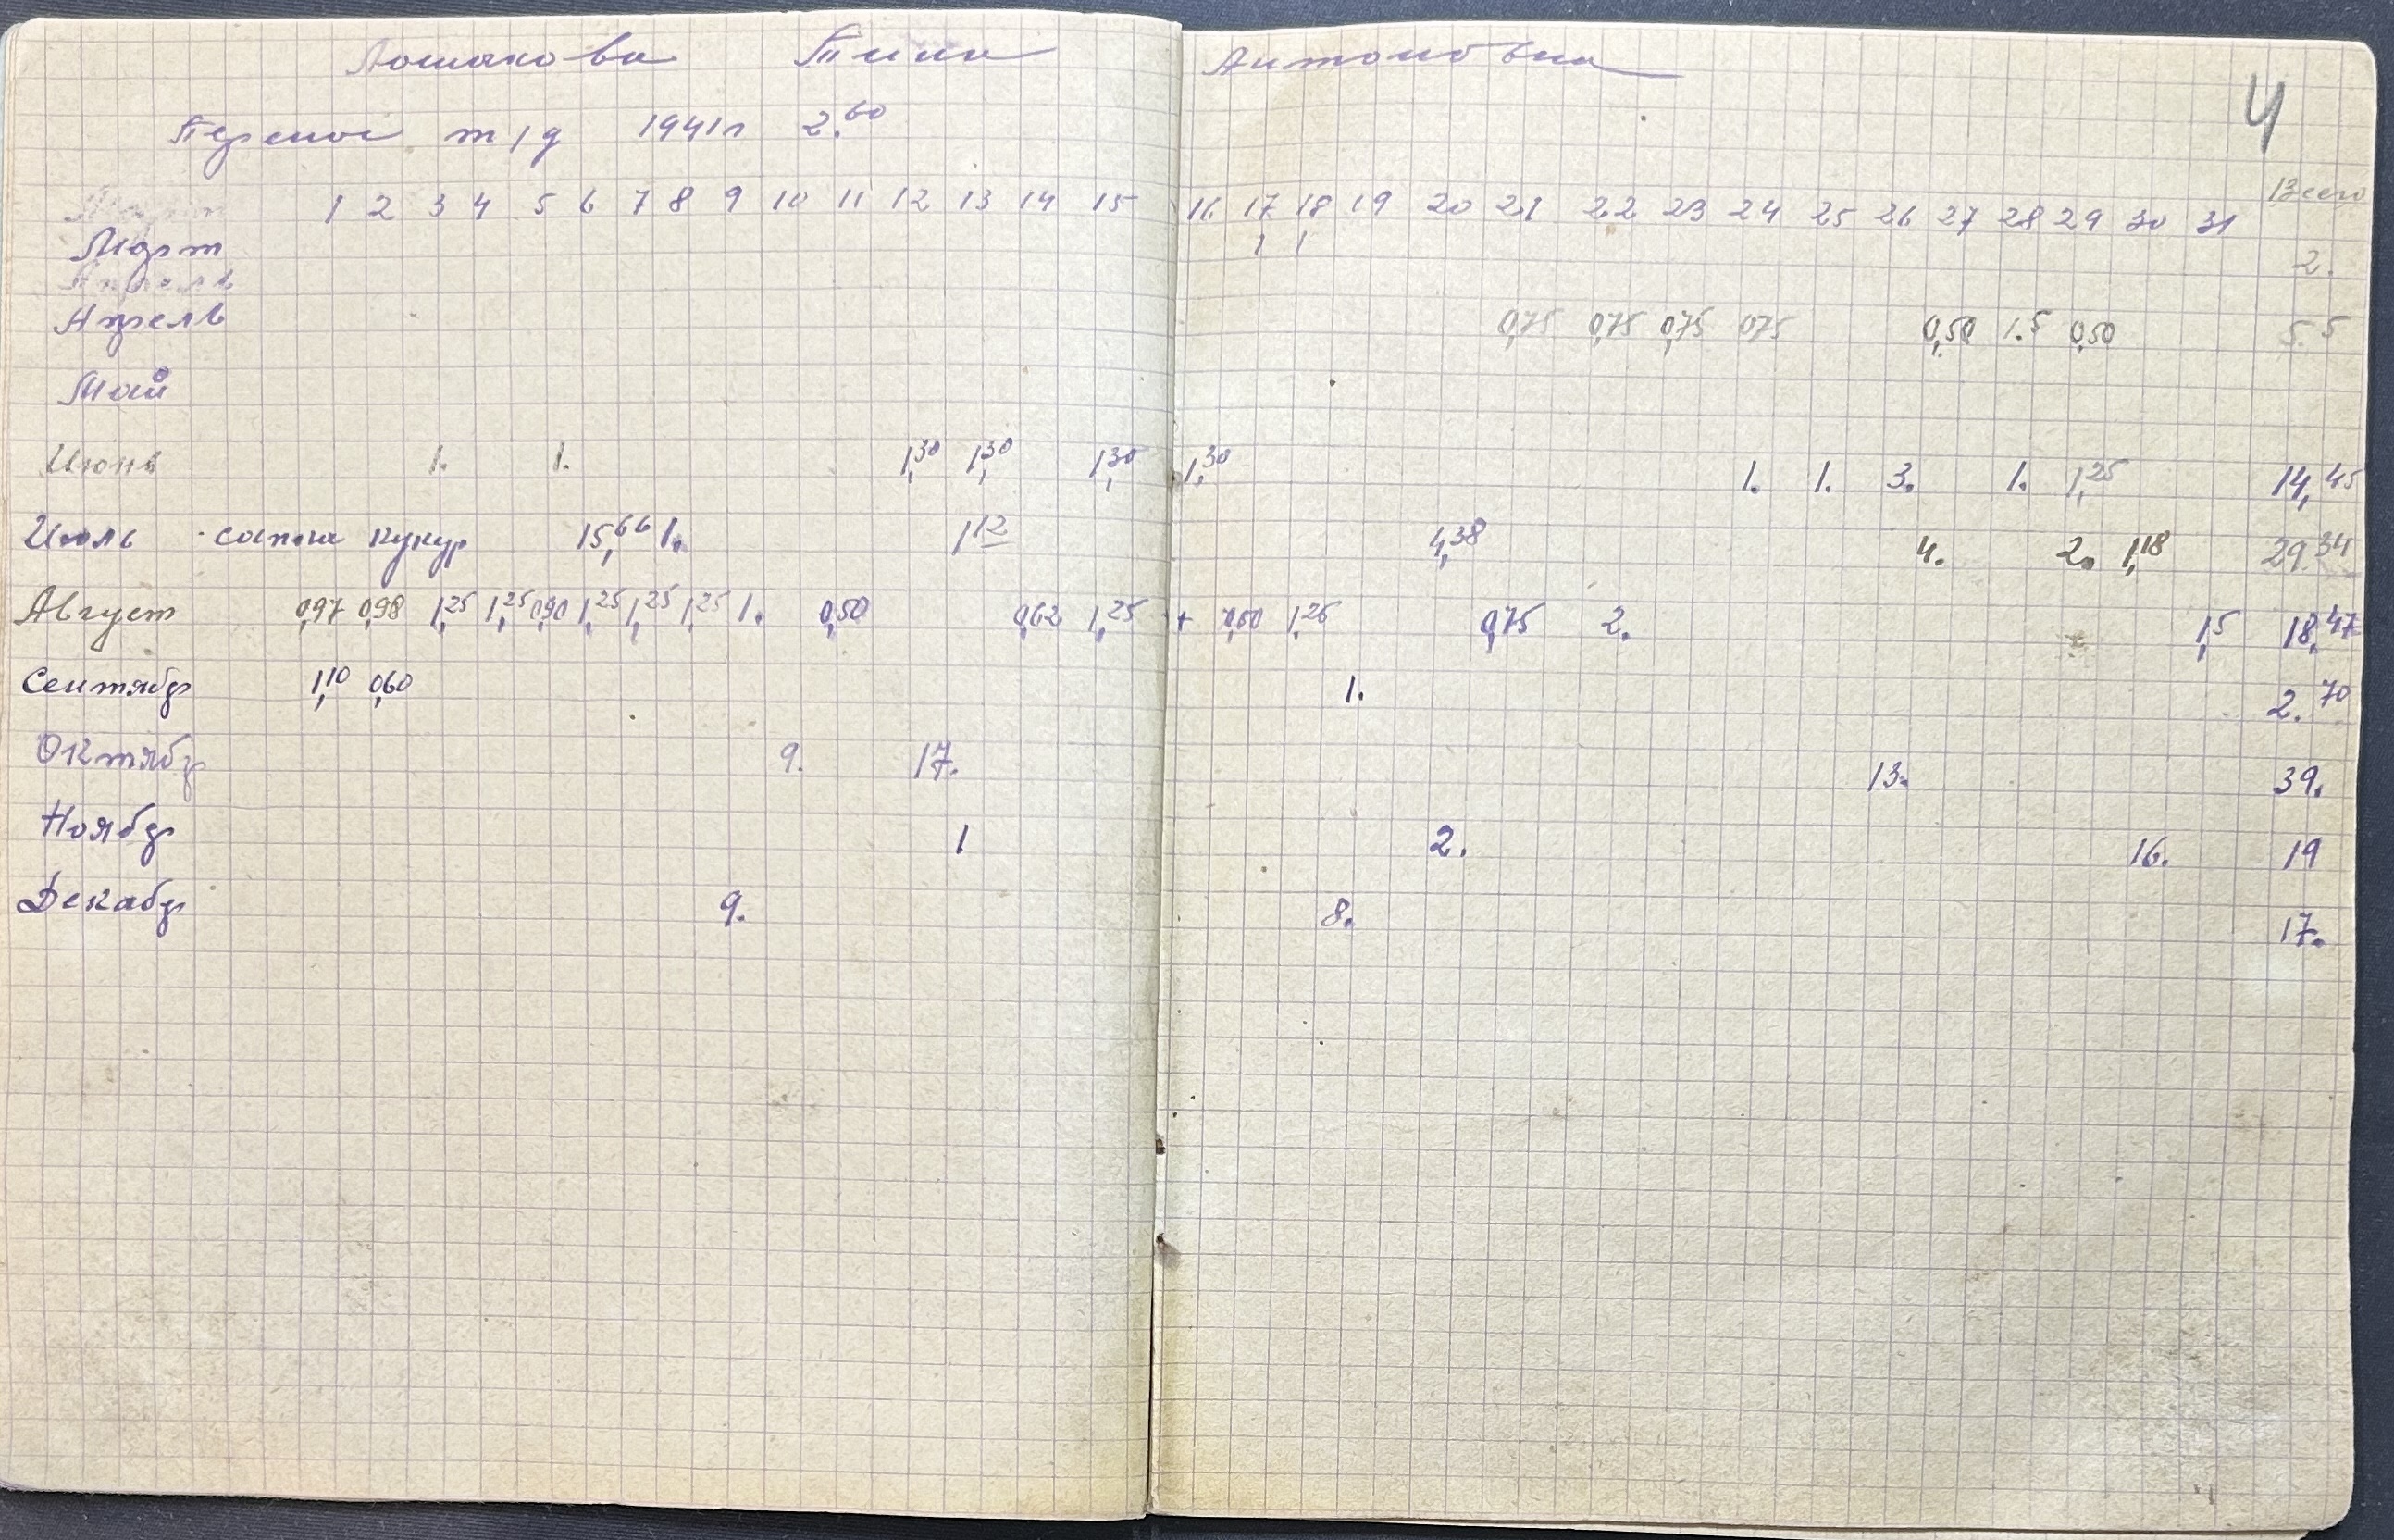 Лошакова Тина Антоновна
4
Перенос т/д 1941г 2.60
Март 1 2 3 4 5 6 7 8 9 10 11 12 13 14 15 16 17 18 19 20 21 22 23 24 25 26 27 28 29 30 31 Всего
Март 1 1 2.
Апрель
Апрель 0,75 0,75 0,75 0,75 0,50 1.5 0,50 5.5
Май
Июнь 1. 1. 1,30 1,30 1,30 1,30 1. 1. 3. 1. 1,25 14,45
Июль кукур 15,66 1. 1 12 4,38 4. 2. 1,18 29.34
Август 0,97 0,98 1,25 1,25 0,90 1,25 1,25 1,25 1. 0,50 0,62 1,25 + 0,60 1,25 0,75 2. 1,5 18,47
Сентябр 1,10 0,60 1. 2.70
Октябр 9. 17. 13. 39.
Ноябр 1 2. 16. 19
Декабр 9. 8. 17.